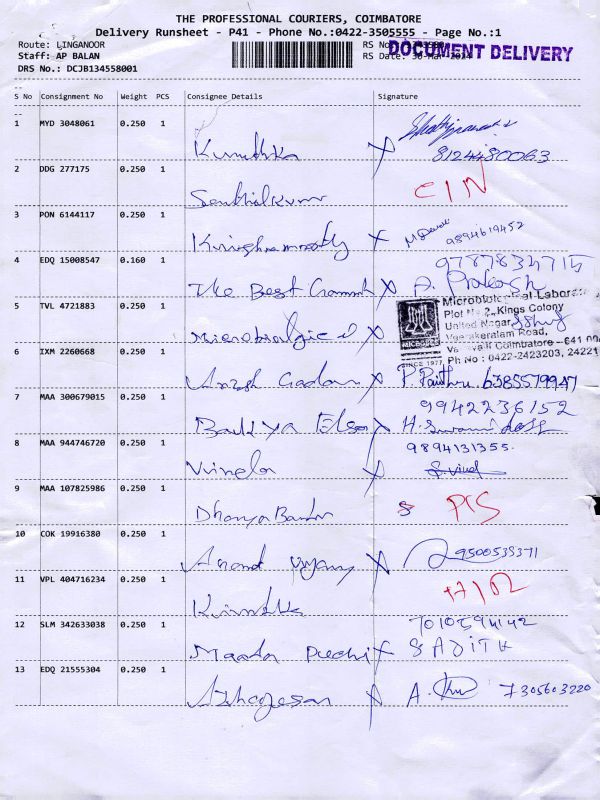 THE PROFESSIONAL COURIERS, COIMBATORE
Delivery Runsheet - P41 - Phone No.:0422-3505555 - Page No.:1
Route: LINGANOOR RS No
DOCUMENT DELIVERY
Staff: AP BALAN RS Date: 30-Mar-2024
DRS No.: DCJB134558001
S No Consignment No Weight PCS Consignee Details Signature
1 MYD 3048061 0.250 1
Kiruthka X 8124480063
2 DDG 277175 0.250 1
Senthilkumar CIN
3 PON 6144117 0.250 1
X 9894619452
4 EDQ 15008547 0.160 1 9787834715
The Best X D. Prakash
5 TVL 4721883 0.250 1
Microbiological Laboratory
Plot No 2, Kings Colony
United Nagar,
Veerakeralam Road,
Coimbatore - 641 00
Ph No : 0422-2423203, 24221
SINCE 1977
X
6 IXM 2260668 0.250 1
X 6385579947
7 MAA 300679015 0.250 1 9942236152
X H. Swamidoss
8 MAA 944746720 0.250 1 9894131355
Vimela X
9 MAA 107825986 0.250 1
Dhanya
10 COK 19916380 0.250 1
Anand X 9500538371
11 VPL 404716234 0.250 1
12 SLM 342633038 0.250 1 7010594142
X SADITH
13 EDQ 21555304 0.250 1
X A. 7305603220